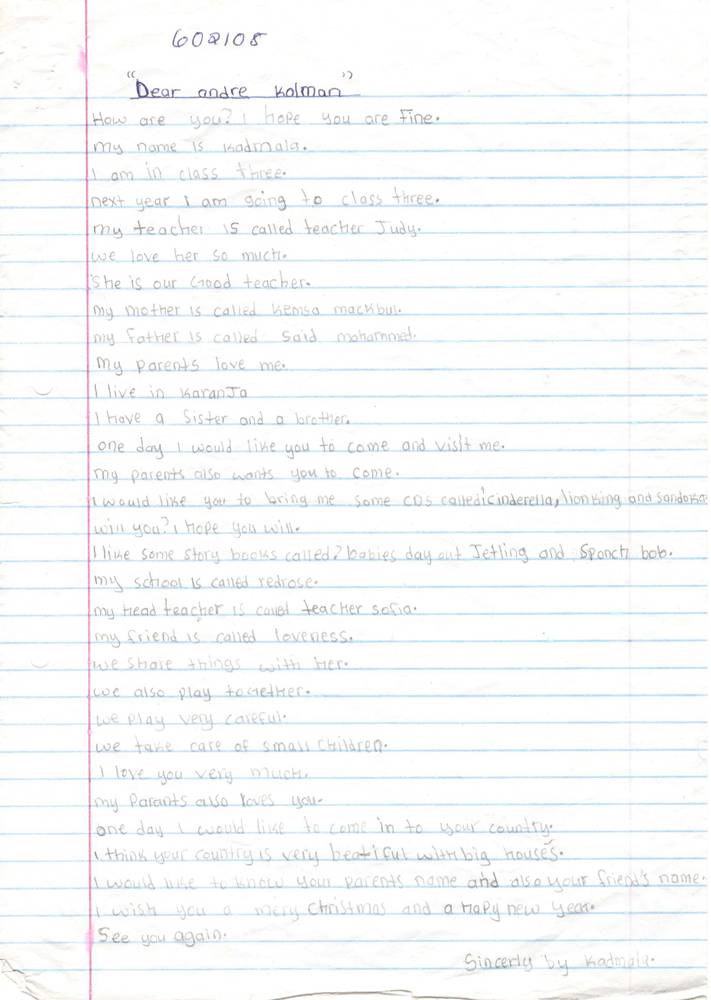 602108
"Dear andre Kolman"
How are you? I hope you are fine.
my name is Kadmala.
I am in class three.
next year I am going to class three.
my teacher is called teacher Judy.
we love her so much.
She is our Good teacher.
my mother is called Kemsa mackbul.
my father is called Said mohammed.
My parents love me.
I live in KaranJa
I have a Sister and a brother.
one day I would like you to come and visit me.
my parents also wants you to come.
I would like you to bring me some CDS called cinderella, lion king and
will you? I hope you will.
I like some story books called? babies day out Jetling and Sponch bob.
my school is called redrose.
my head teacher is called teacher sofia.
my friend is called loveness.
we share things with her.
we also play together.
we play very careful.
we take care of small children.
I love you very much.
my Parants also loves you.
one day I would like to come in to your country.
I think your country is very beatiful with big houses.
I would like to know your parents name and also your friend's name.
I wish you a mery Christmas and a Hapy new year.
See you again.
Sincerly by Kadmala.